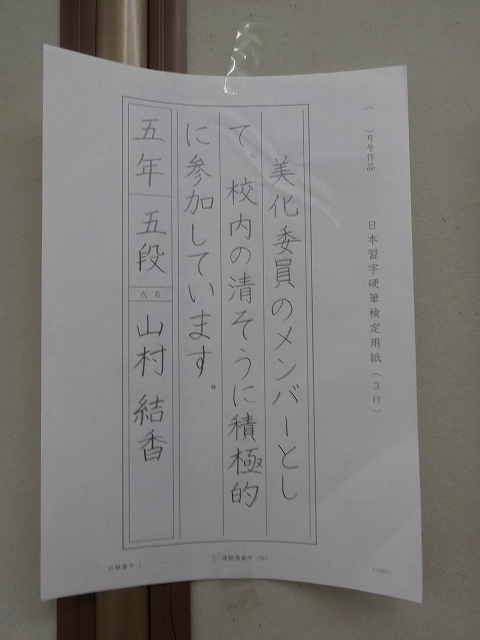 （　　）月号作品
日本習字硬筆検定用紙（３行）
美化委員のメンバーとし
て、校内の清そうに積極的
に参加しています。
五年 五段 氏名 山村 結香